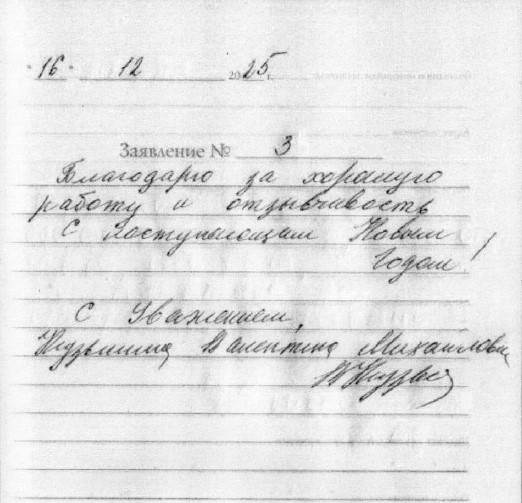 "16" 12 2025 г.
Заявление № 3
Благодарю за хорошую
работу и отзывчивость
С наступающим Новым
Годом!
С Уважением,
Валентина Михайловна